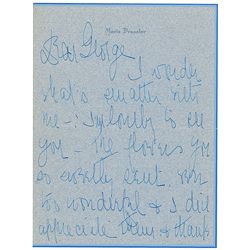 Marie Dressler
Dear George
I wonder
what's smatter with
me - I'm lonely to see
you - The flowers you
so sweetly sent. were
so wonderful & I did
appreciate them & thank